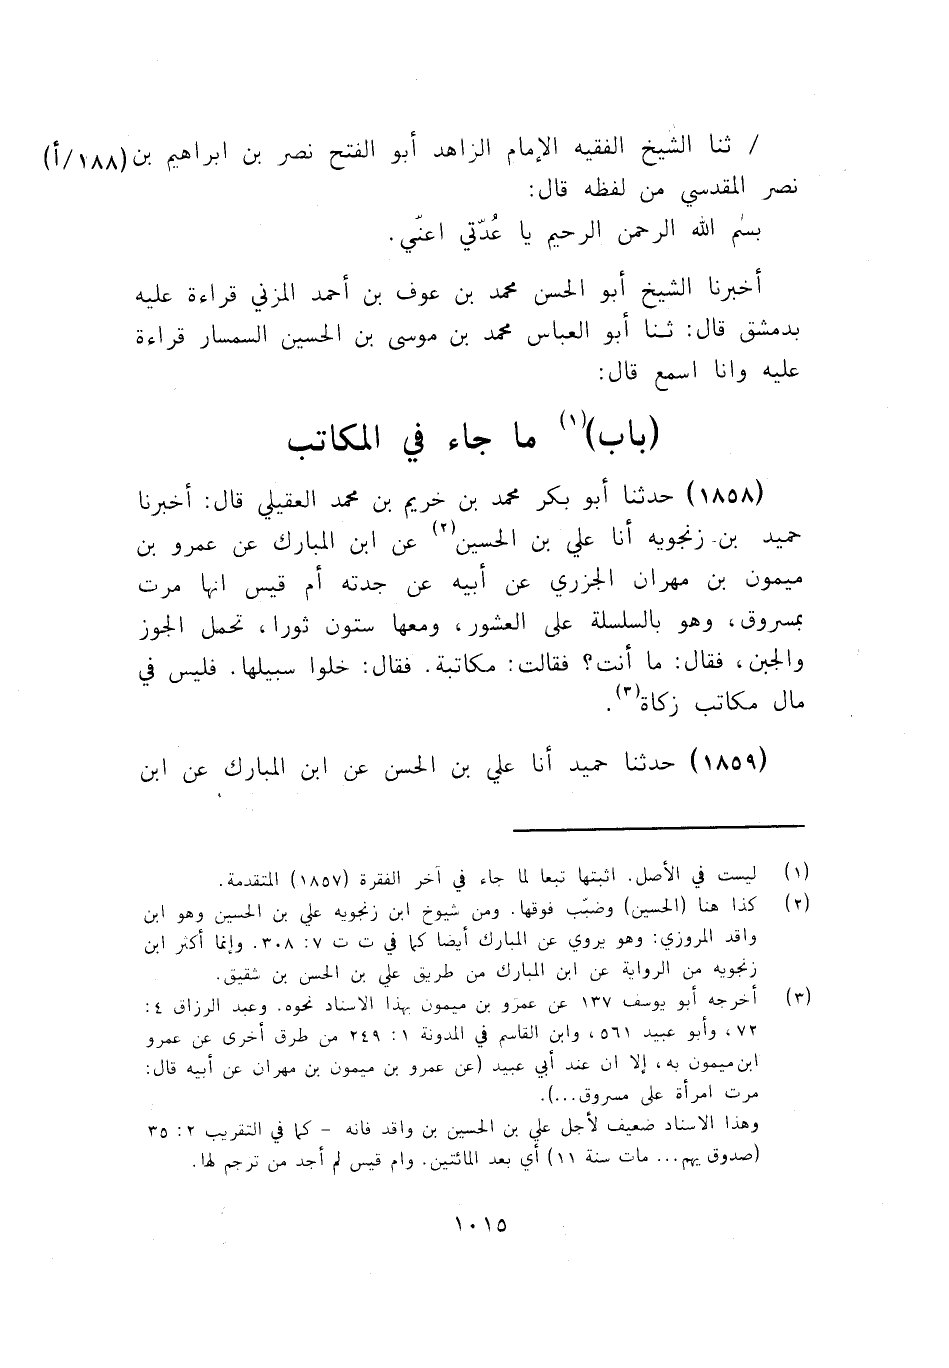 / ثنا الشيخ الفقيه الإمام الزاهد أبو الفتح نصر بن ابراهيم بن (١٨٨/أ)
نصر المقدسي من لفظه قال:
بسْم الله الرحمن الرحيم يا عُدّتي اعنّي.
أخبرنا الشيخ أبو الحسن محمد بن عوف بن أحمد المزني قراءة عليه
بدمشق قال: ثنا أبو العباس محمد بن موسى بن الحسين السمسار قراءة
عليه وانا اسمع قال:
(باب)(١) ما جاء في المكاتب
(١٨٥٨) حدثنا أبو بكر محمد بن خريم بن محمد العقيلي قال: أخبرنا
حميد بن زنجويه أنا علي بن الحسين(٢) عن ابن المبارك عن عمرو بن
ميمون بن مهران الجزري عن أبيه عن جدته أم قيس انها مرت
بمسروق، وهو بالسلسلة على العشور، ومعها ستون ثورا، تحمل الجوز
والجبن، فقال: ما أنت؟ فقالت: مكاتبة. فقال: خلوا سبيلها. فليس في
مال مكاتب زكاة(٣).
(١٨٥٩) حدثنا حميد أنا علي بن الحسن عن ابن المبارك عن ابن
(١) ليست في الأصل. اثبتها تبعا لما جاء في آخر الفقرة (١٨٥٧) المتقدمة.
(٢) كذا هنا (الحسين) وضبّب فوقها. ومن شيوخ ابن زنجويه علي بن الحسين وهو ابن
واقد المروزي: وهو يروي عن المبارك أيضا كما في ت ت ٧: ٣٠٨. وإنما أكثر ابن
زنجويه من الرواية عن ابن المبارك من طريق علي بن الحسن بن شقيق.
(٣) أخرجه أبو يوسف ١٣٧ عن عمرو بن ميمون بهذا الاسناد نحوه. وعبد الرزاق ٤:
٧٢، وأبو عبيد ٥٦١، وابن القاسم في المدونة ١: ٢٤٩ من طرق أخرى عن عمرو
ابن ميمون به، إلا ان عند أبي عبيد (عن عمرو بن ميمون بن مهران عن أبيه قال:
مرت امرأة على مسروق...).
وهذا الاسناد ضعيف لأجل علي بن الحسين بن واقد فانه - كما في التقريب ٢: ٣٥
(صدوق يهم... مات سنة ١١) أي بعد المائتين. وام قيس لم أجد من ترجم لها.
١٠١٥